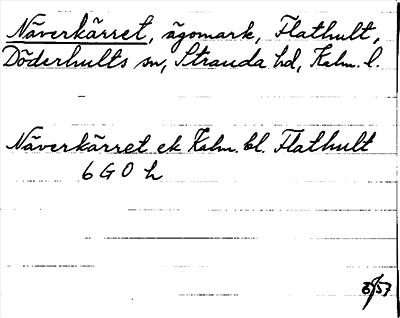 Näverkärret, ägomark, Flathult,
Döderhults sn, Stranda hd, Kalm. l.
Näverkärret ek Kalm. bl. Flathult
6 G 0 h